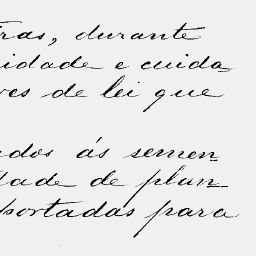 tras, durante
idade e cuida
res de lei que
ados ás semen
dade de plan-
portadas para